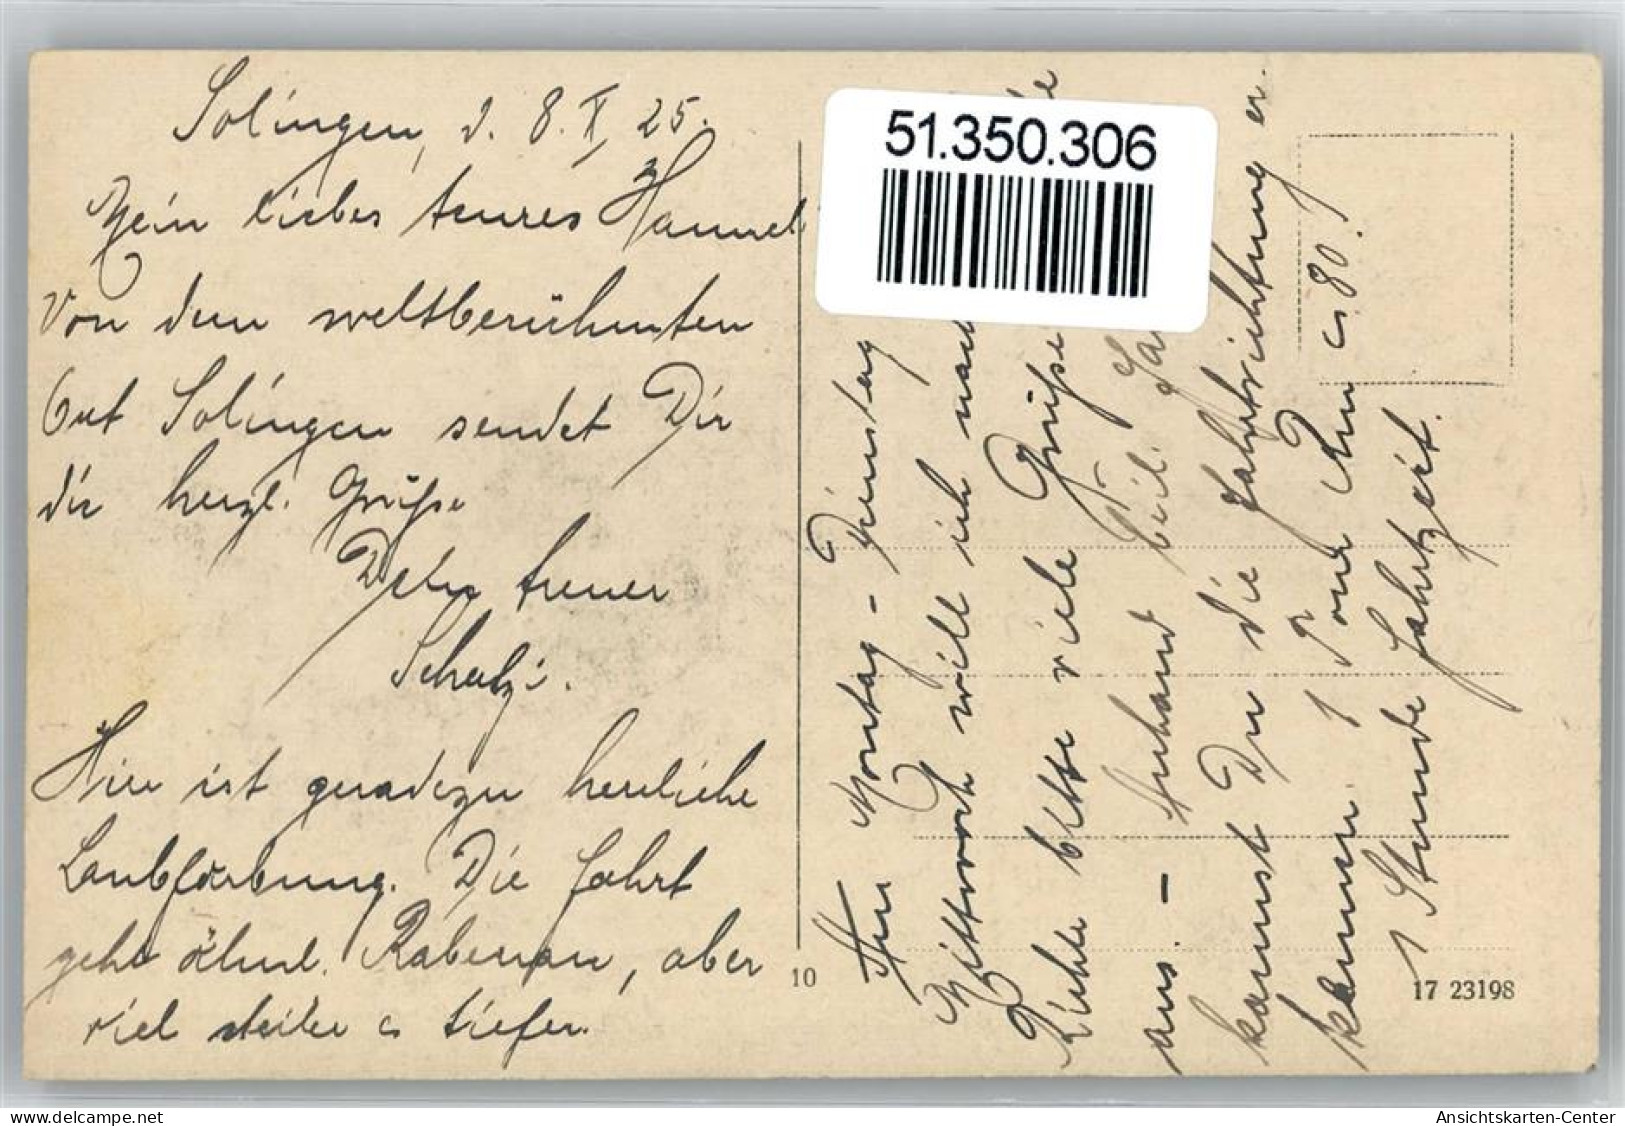 Solingen, d. 8. X, 25.
Mein liebes teures Hannel
Von dem weltberühmten
Ort Solingen sendet Dir
die herzl. Grüße
Dein treuer
Schatzi.
Hier ist geradezu herrliche
Laubfärbung. Die Fahrt
geht ähnl. Rabenau, aber
viel steiler u tiefer.
10
51.350.306
Montag - Dienstag
Mittwoch will ich nach
Richte bitte viele Grüße
aus. - Anhand beil.
kannst Du die Fahrtrichtung er-
kennen. 1 Tour ca 80
1 Stunde Fahrtzeit.
17 23198
www.delcampe.net
Ansichtskarten-Center